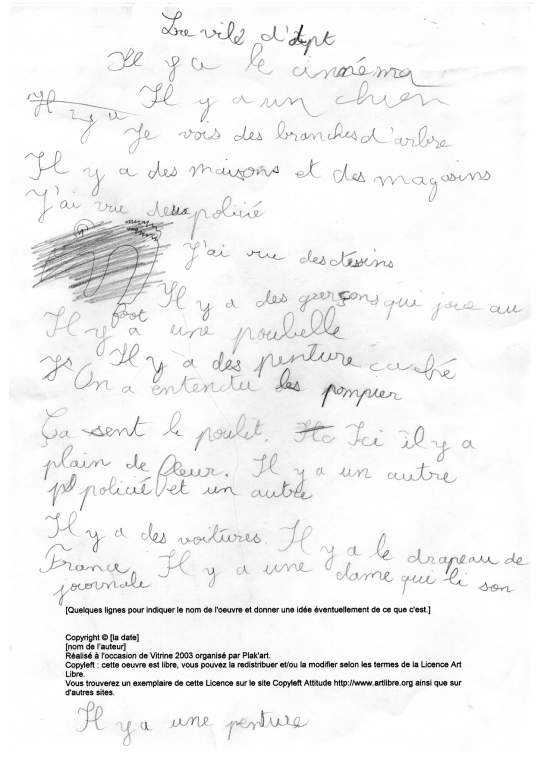 La ville d'Apt
Il y a le cinnéma
Il y a Il y a un chien
Je vois des branches d'arbre
Il y a des maisons et des magasins
J'ai vue deux policié
J'ai vue des dessins
Il y a des garçons qui joue au
foot
Il y a une poubelle
Il y a des penture caché
On a entendu les pompier
Ça sent le poulet. Ici il y a
plain de fleur. Il y a un autre
policié et un autre
Il y a des voitures. Il y a le drapeau de
France. Il y a une dame qui li son
journale
[Quelques lignes pour indiquer le nom de l'oeuvre et donner une idée éventuellement de ce que c'est.]
Copyright © [la date]
[nom de l'auteur]
Réalisé à l'occasion de Vitrine 2003 organisé par Plak'art.
Copyleft : cette oeuvre est libre, vous pouvez la redistribuer et/ou la modifier selon les termes de la Licence Art
Libre.
Vous trouverez un exemplaire de cette Licence sur le site Copyleft Attitude http://www.artlibre.org ainsi que sur
d'autres sites.
Il y a une penture